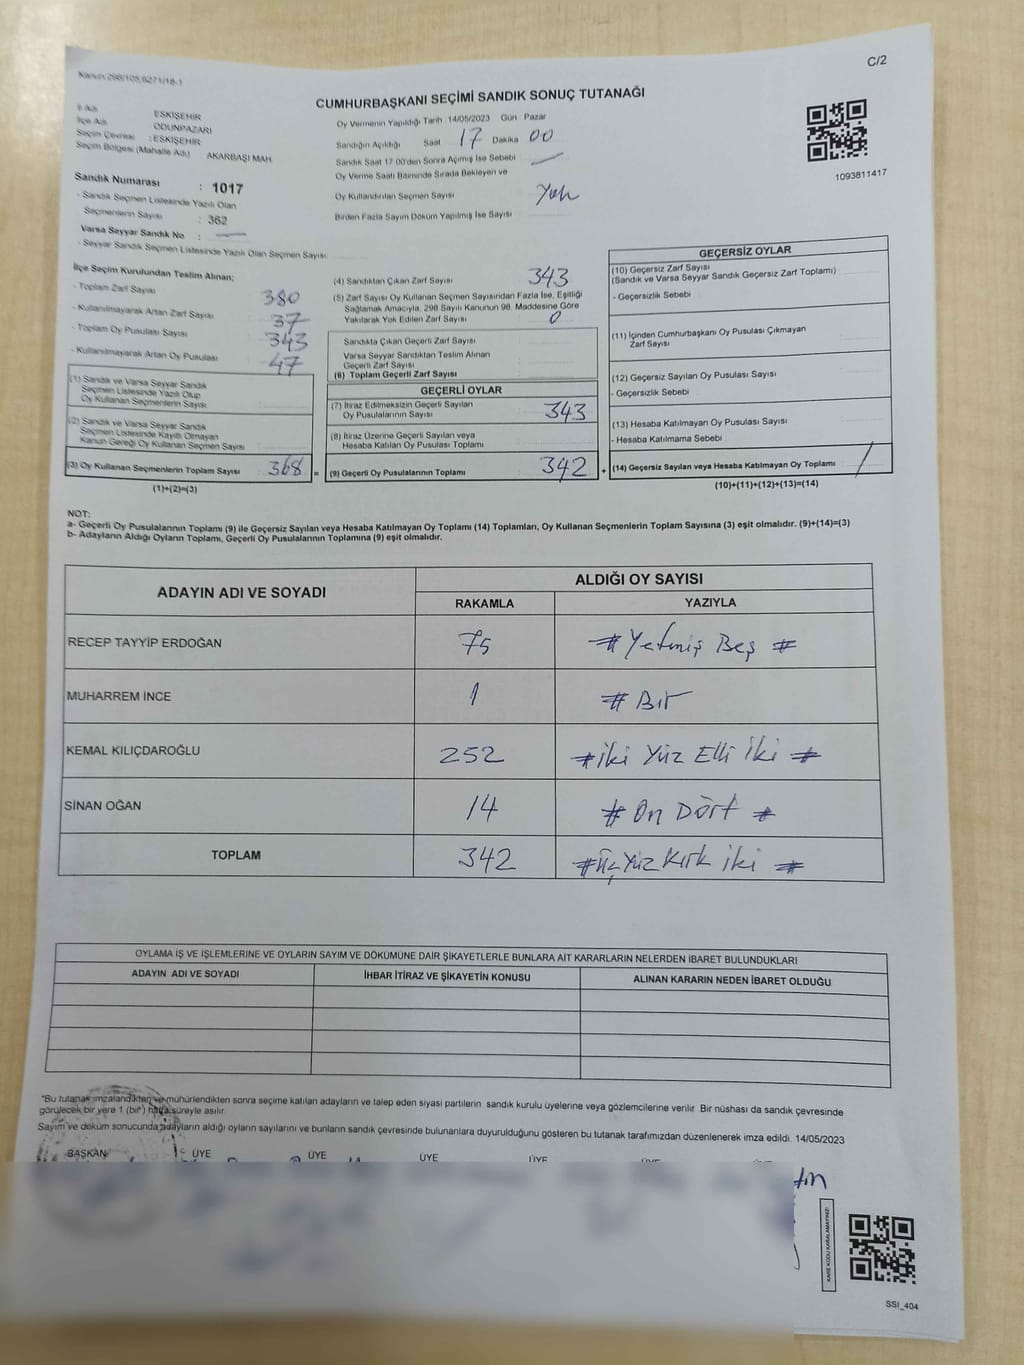 Kanun:298/105,6271/18-1
C/2
CUMHURBAŞKANI SEÇİMİ SANDIK SONUÇ TUTANAĞI
İl Adı ESKİŞEHİR
İlçe Adı ODUNPAZARI
Seçim Çevresi : ESKİŞEHİR
Seçim Bölgesi (Mahalle Adı) AKARBAŞI MAH
Sandık Numarası : 1017
- Sandık Seçmen Listesinde Yazılı Olan
Seçmenlerin Sayısı : 362
Varsa Seyyar Sandık No :
- Seyyar Sandık Seçmen Listesinde Yazılı Olan Seçmen Sayısı
Oy Vermenin Yapıldığı Tarih 14/05/2023 Gün Pazar
Sandığın Açıldığı Saat 17 Dakika 00
Sandık Saat 17:00'den Sonra Açılmış İse Sebebi
Oy Verme Saati Bitiminde Sırada Bekleyen ve
Oy Kullandırılan Seçmen Sayısı Yok
Birden Fazla Sayım Döküm Yapılmış İse Sayısı
1093811417
İlçe Seçim Kurulundan Teslim Alınan;
- Toplam Zarf Sayısı 380
- Kullanılmayarak Artan Zarf Sayısı 37
- Toplam Oy Pusulası Sayısı 343
- Kullanılmayarak Artan Oy Pusulası 47
(1) Sandık ve Varsa Seyyar Sandık
Seçmen Listesinde Yazılı Olup
Oy Kullanan Seçmenlerin Sayısı
(2) Sandık ve Varsa Seyyar Sandık
Seçmen Listesinde Kayıtlı Olmayan
Kanun Gereği Oy Kullanan Seçmen Sayısı
(3) Oy Kullanan Seçmenlerin Toplam Sayısı 368 =
(1)+(2)=(3)
(4) Sandıktan Çıkan Zarf Sayısı 343
(5) Zarf Sayısı Oy Kullanan Seçmen Sayısından Fazla İse, Eşitliği
Sağlamak Amacıyla, 298 Sayılı Kanunun 98. Maddesine Göre
Yakılarak Yok Edilen Zarf Sayısı 0
Sandıkta Çıkan Geçerli Zarf Sayısı
Varsa Seyyar Sandıktan Teslim Alınan
Geçerli Zarf Sayısı
(6) Toplam Geçerli Zarf Sayısı
GEÇERLİ OYLAR
(7) İtiraz Edilmeksizin Geçerli Sayılan
Oy Pusulalarının Sayısı 343
(8) İtiraz Üzerine Geçerli Sayılan veya
Hesaba Katılan Oy Pusulası Toplamı
(9) Geçerli Oy Pusulalarının Toplamı 342 +
GEÇERSİZ OYLAR
(10) Geçersiz Zarf Sayısı
(Sandık ve Varsa Seyyar Sandık Geçersiz Zarf Toplamı)
- Geçersizlik Sebebi
(11) İçinden Cumhurbaşkanı Oy Pusulası Çıkmayan
Zarf Sayısı
(12) Geçersiz Sayılan Oy Pusulası Sayısı
- Geçersizlik Sebebi
(13) Hesaba Katılmayan Oy Pusulası Sayısı
- Hesaba Katılmama Sebebi
(14) Geçersiz Sayılan veya Hesaba Katılmayan Oy Toplamı 1
(10)+(11)+(12)+(13)=(14)
NOT:
a- Geçerli Oy Pusulalarının Toplamı (9) ile Geçersiz Sayılan veya Hesaba Katılmayan Oy Toplamı (14) Toplamları, Oy Kullanan Seçmenlerin Toplam Sayısına (3) eşit olmalıdır. (9)+(14)=(3)
b- Adayların Aldığı Oyların Toplamı, Geçerli Oy Pusulalarının Toplamına (9) eşit olmalıdır.
ADAYIN ADI VE SOYADI ALDIĞI OY SAYISI
RAKAMLA YAZIYLA
RECEP TAYYİP ERDOĞAN 75 # Yetmiş Beş #
MUHARREM İNCE 1 # Bir
KEMAL KILIÇDAROĞLU 252 # iki Yüz Elli İki #
SİNAN OĞAN 14 # On Dört #
TOPLAM 342 # Üç Yüz Kırk İki #
OYLAMA İŞ VE İŞLEMLERİNE VE OYLARIN SAYIM VE DÖKÜMÜNE DAİR ŞİKAYETLERLE BUNLARA AİT KARARLARIN NELERDEN İBARET BULUNDUKLARI
ADAYIN ADI VE SOYADI İHBAR İTİRAZ VE ŞİKAYETİN KONUSU ALINAN KARARIN NEDEN İBARET OLDUĞU
"Bu tutanak imzalandıktan ve mühürlendikten sonra seçime katılan adayların ve talep eden siyasi partilerin sandık kurulu üyelerine veya gözlemcilerine verilir. Bir nüshası da sandık çevresinde
görülecek bir yere 1 (bir) hafta süreyle asılır.
Sayım ve döküm sonucunda adayların aldığı oyların sayılarını ve bunların sandık çevresinde bulunanlara duyurulduğunu gösteren bu tutanak tarafımızdan düzenlenerek imza edildi. 14/05/2023
BAŞKAN ÜYE ÜYE ÜYE ÜYE
KARE KODU KARALAMAYINIZ!
SSI_404